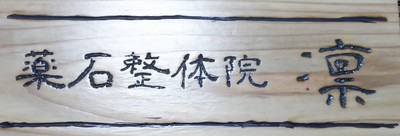 薬石整体院 凛